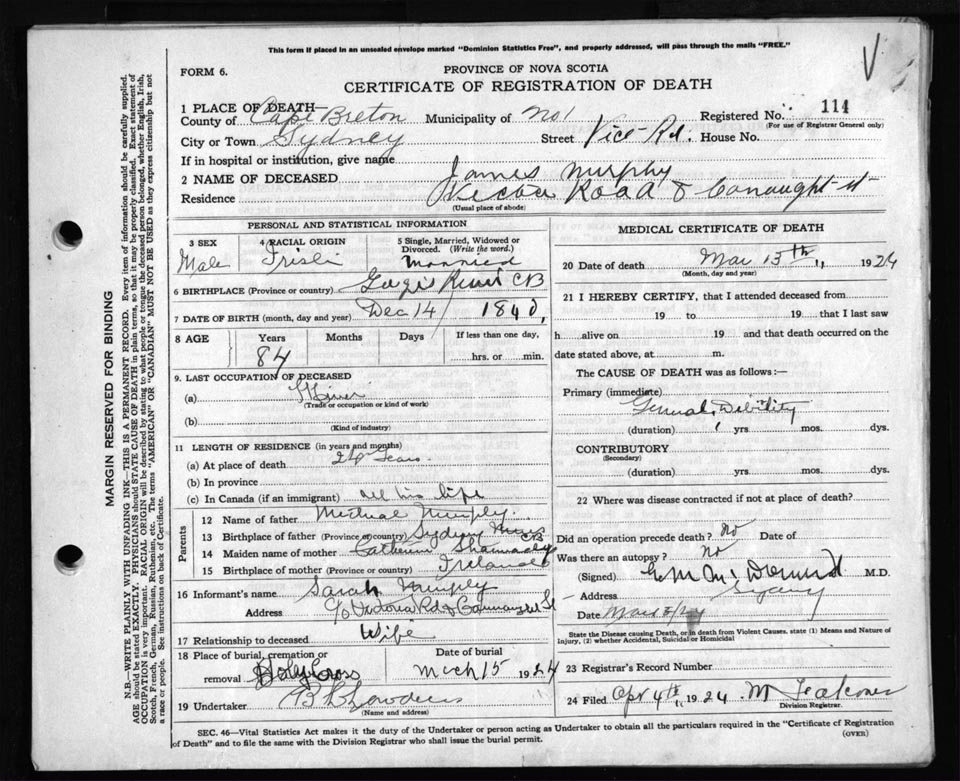 This form if placed in an unsealed envelope marked "Dominion Statistics Free", and properly addressed, will pass through the mails "FREE."
FORM 6.
PROVINCE OF NOVA SCOTIA
CERTIFICATE OF REGISTRATION OF DEATH
1 PLACE OF DEATH—
County of Cape Breton Municipality of No 1 Registered No. 114
(For use of Registrar General only)
City or Town Sydney Street Vice-Rd. House No.
If in hospital or institution, give name
2 NAME OF DECEASED James Murphy
Residence Road & Conaught-st-
(Usual place of abode)
PERSONAL AND STATISTICAL INFORMATION
3 SEX Male
4 RACIAL ORIGIN Irish
5 Single, Married, Widowed or Divorced. (Write the word.) Married
6 BIRTHPLACE (Province or country) CB
7 DATE OF BIRTH (month, day and year) Dec 14 1840,
8 AGE Years 84 Months Days If less than one day, hrs. or min.
9. LAST OCCUPATION OF DECEASED
(a) Miner
(Trade or occupation or kind of work)
(b)
(Kind of industry)
11 LENGTH OF RESIDENCE (in years and months)
(a) At place of death 24 Years.
(b) In province
(c) In Canada (if an immigrant) all his life
Parents
12 Name of father Michael Murphy.
13 Birthplace of father (Province or country) Sydney Mines CB
14 Maiden name of mother Catherine
15 Birthplace of mother (Province or country) Ireland
16 Informant's name Sarah Murphy
Address c/o Victoria Rd & St
17 Relationship to deceased Wife
18 Place of burial, cremation or removal Holy Cross
Date of burial March 15 1924
19 Undertaker
(Name and address)
MEDICAL CERTIFICATE OF DEATH
20 Date of death Mar 13th 1924
(Month, day and year)
21 I HEREBY CERTIFY, that I attended deceased from
19 to 19 that I last saw
h alive on 19 and that death occurred on the
date stated above, at m.
The CAUSE OF DEATH was as follows:—
Primary (immediate)
General Debility
(duration) yrs. mos. dys.
CONTRIBUTORY
(Secondary)
(duration) yrs. mos. dys.
22 Where was disease contracted if not at place of death?
Did an operation precede death? No Date of
Was there an autopsy? No
(Signed) M.D.
Address Sydney
Date
State the Disease causing Death, or in death from Violent Causes, state (1) Means and Nature of Injury, (2) whether Accidental, Suicidal or Homicidal
23 Registrar's Record Number
24 Filed Apr 4th 1924 M Falconer
Division Registrar.
SEC. 46—Vital Statistics Act makes it the duty of the Undertaker or person acting as Undertaker to obtain all the particulars required in the "Certificate of Registration
of Death" and to file the same with the Division Registrar who shall issue the burial permit.
(OVER)
MARGIN RESERVED FOR BINDING
N.B.—WRITE PLAINLY WITH UNFADING INK—THIS IS A PERMANENT RECORD. Every item of information should be carefully supplied.
AGE should be stated EXACTLY. PHYSICIANS should STATE CAUSE OF DEATH in plain terms, so that it may be properly classified. Exact statement of
OCCUPATION is very important. RACIAL ORIGIN will be described by stating to what people or tongue the deceased person belonged, whether English, Irish,
Scotch, French, German, Russian, Ruthenian, etc. The terms "AMERICAN" or "CANADIAN" MUST NOT BE USED as they express citizenship but not
a race or people. See instructions on back of Certificate.